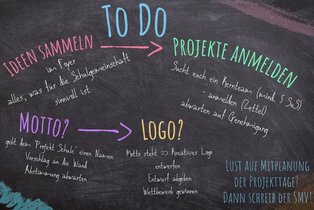 TO DO
IDEEN SAMMELN
im Foyer
alles, was für die Schulgemeinschaft
sinnvoll ist
PROJEKTE ANMELDEN
Sucht euch ein Kernteam (mind. 5 SuS)
- anmelden (Zettel)
abwarten auf Genehmigung
MOTTO?
gebt dem "Projekt Schule" einen Namen
Vorschlag an die Wand
Abstimmung abwarten
LOGO?
Motto steht => Kreatives Logo
entwerfen
Entwurf abgeben
Wettbewerb gewinnen
LUST AUF MITPLANUNG
DER PROJEKTTAGE?
DANN SCHREIB DER SMV!